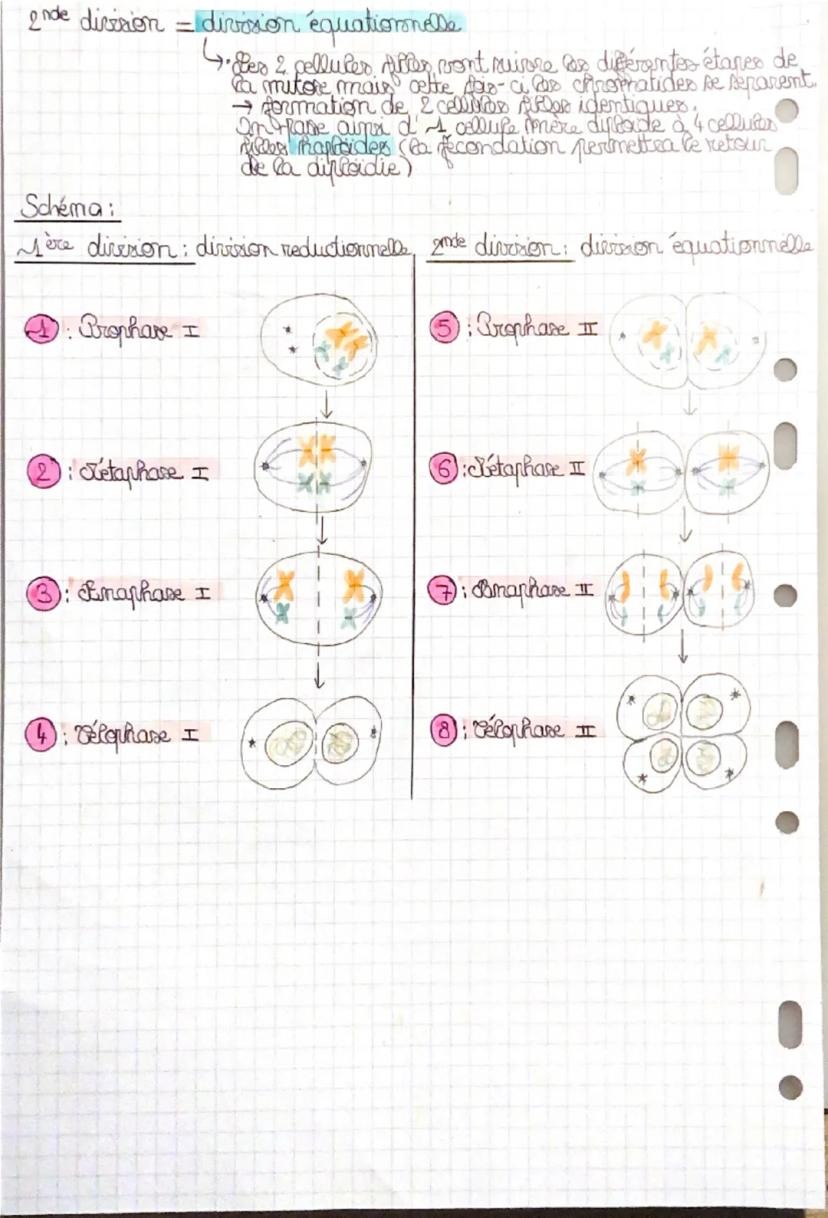 2nde division = division équationnelle
↳ · Les 2 cellules filles vont suivre les différentes étapes de
la mitose mais cette fois-ci les chromatides se séparent.
→ formation de 2 cellules filles identiques.
On passe ainsi d'1 cellule mère diploïde à 4 cellules
filles haploïdes (la fécondation permettra le retour
de la diploïdie)
Schéma :
1ère division : division reductionnelle
1 : Prophase I
2 : Métaphase I
3 : Anaphase I
4 : Télophase I
2nde division : division équationnelle
5 : Prophase II
6 : Métaphase II
7 : Anaphase II
8 : Télophase II